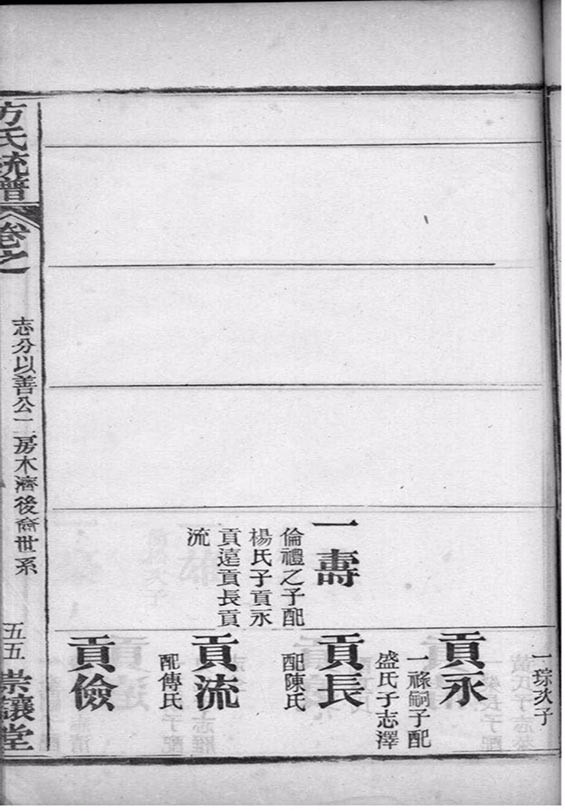 一琮次子
一壽
倫禮之子配
楊氏子貢永
貢遠貢長貢
流
貢永
一祿嗣子配
盛氏子志澤
貢長
配陳氏
貢流
配傅氏
貢儉
方氏統譜
卷之
志分以善公二房木濟後裔世系
五五
崇讓堂